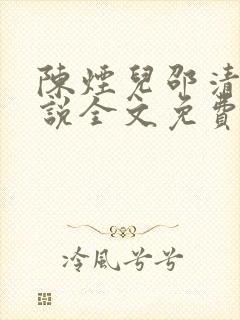 陳煙兒邵清
說全文免費
冷風兮兮